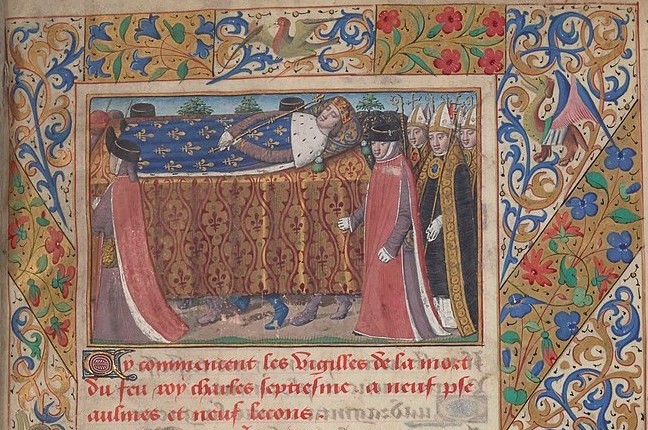 Cy commencent les vigilles de la mort
du feu roy charles septiesme a neuf pse
aulmes et neuf lecons.